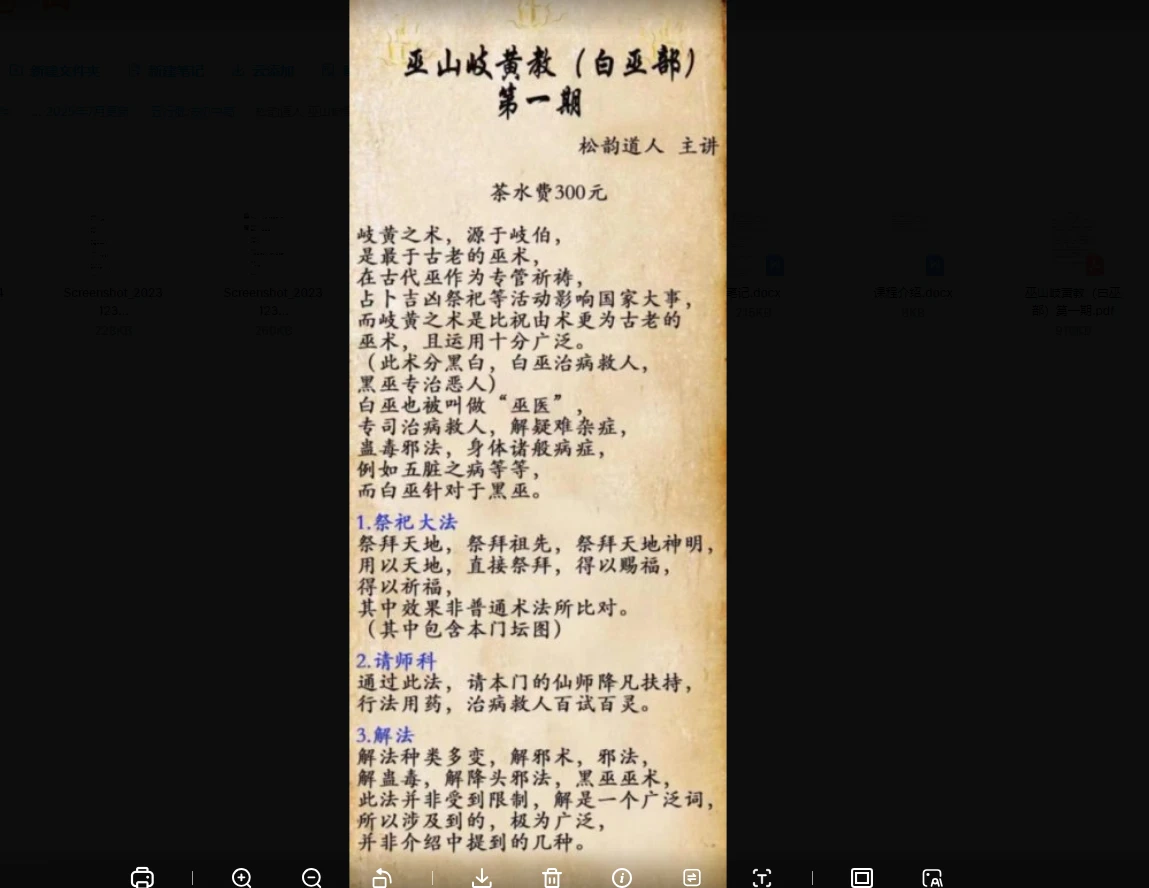 巫山岐黄教（白巫部）
第一期
松韵道人 主讲
茶水费300元
岐黄之术，源于岐伯，
是最于古老的巫术，
在古代巫作为专管祈祷，
占卜吉凶祭祀等活动影响国家大事，
而岐黄之术是比祝由术更为古老的
巫术，且运用十分广泛。
（此术分黑白，白巫治病救人，
黑巫专治恶人）
白巫也被叫做“巫医”，
专司治病救人，解疑难杂症，
蛊毒邪法，身体诸般病症，
例如五脏之病等等，
而白巫针对于黑巫。
1.祭祀大法
祭拜天地，祭拜祖先，祭拜天地神明，
用以天地，直接祭拜，得以赐福，
得以祈福，
其中效果非普通术法所比对。
（其中包含本门坛图）
2.请师科
通过此法，请本门的仙师降凡扶持，
行法用药，治病救人百试百灵。
3.解法
解法种类多变，解邪术，邪法，
解蛊毒，解降头邪法，黑巫巫术，
此法并非受到限制，解是一个广泛词，
所以涉及到的，极为广泛，
并非介绍中提到的几种。
Screenshot_2023
Screenshot_2023
笔记.docx
课程介绍.docx
巫山岐黄教（白巫
部）第一期.pdf